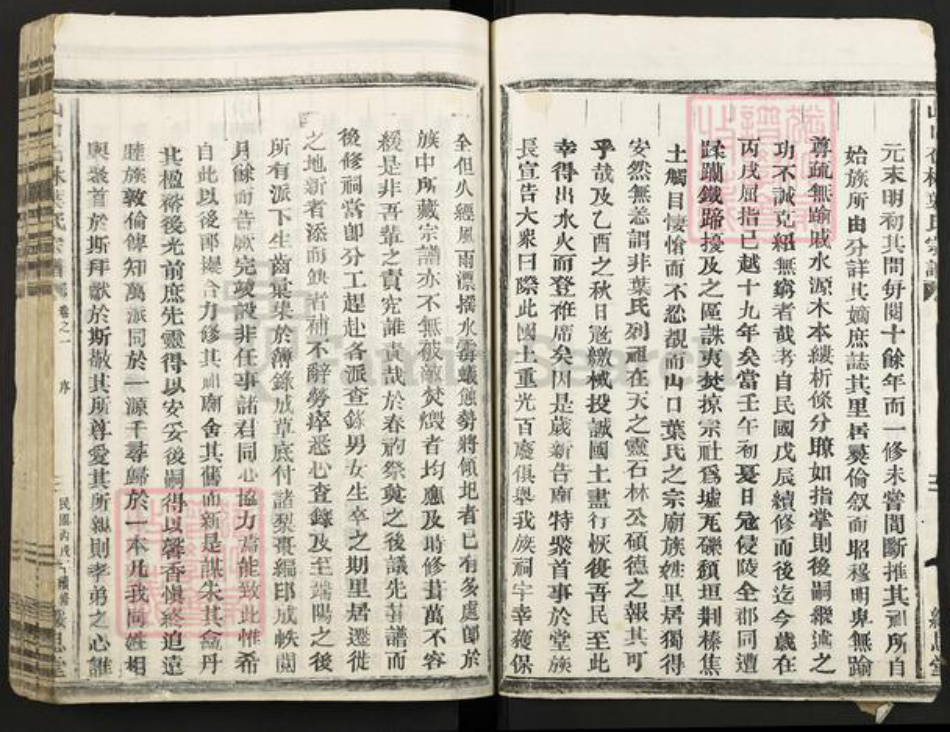 元末明初其間每閱十餘年而一修未嘗間斷推其祖所自
始族所由分詳其嫡庶誌其里居彝倫叙而昭穆明卑無踰
尊疏無踰戚水源木本縷析條分瞭如指掌則後嗣繼述之
功不誠克紹無窮者哉考自民國戊辰續修而後迄今歲在
丙戌屈指已越十九年矣當壬午初夏日寇侵陵全郡同遭
蹂躪鐵蹄擾及之區誅夷焚掠宗社爲墟瓦礫頹垣荆榛焦
土觸目悽愴而不忍覩而山口葉氏之宗廟族姓里居獨得
安然無恙謂非葉氏列祖在天之靈石林公碩德之報其可
乎哉及乙酉之秋日寇繳械投誠國土盡行恢復吾民至此
幸得出水火而登袵席矣因是歲新告廟特聚首事於堂族
長宣告大衆曰際此國土重光百廢俱舉我族祠宇幸獲保
全但久經風雨漂搖水霉蟻蝕勢將傾圮者已有多處卽於
族中所藏宗譜亦不無被敵焚燬者均應及時修葺萬不容
緩是非吾輩之責究誰責哉於春祠祭奠之後議先葺譜而
後修祠當卽分工趕赴各派查錄男女生卒之期里居遷徙
之地新者添而缺者補不辭勞瘁悉心查錄及至端陽之後
所有派下生齒彙集於薄錄成草底付諸梨棗編印成帙閱
月餘而告厥完竣設非任事諸君同心協力焉能致此惟希
自此以後再擬合力修其祠廟舍其舊而新是謀朱其盦丹
其楹裕後光前庶先靈得以安妥後嗣得以馨香愼終追遠
睦族敦倫俾知萬派同於一源千尋歸於一本凡我同姓相
與聚首於斯拜獻於斯敬其所尊愛其所親則孝弟之心誰
卷之一
序
民國丙戌